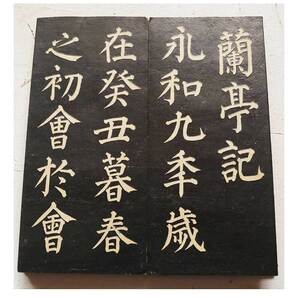 蘭亭記
永和九年歲
在癸丑暮春
之初會於會